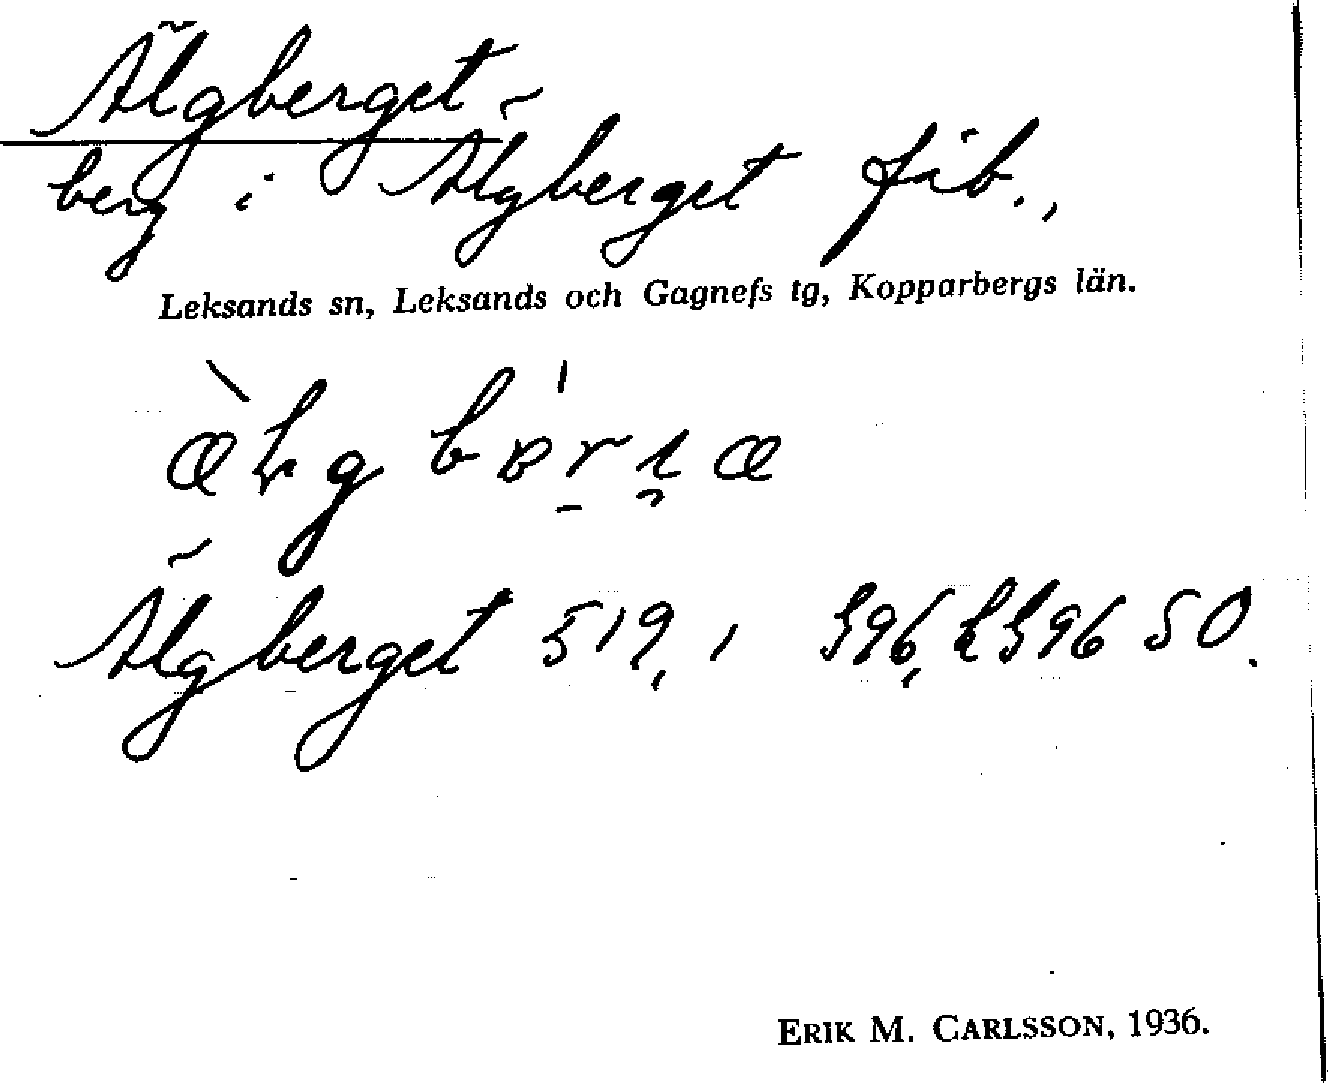 Älgberget
berg i Älgberget fäb.,
Leksands sn, Leksands och Gagnefs tg, Kopparbergs län.
Älgberget 519, 396, 50.
ERIK M. CARLSSON, 1936.